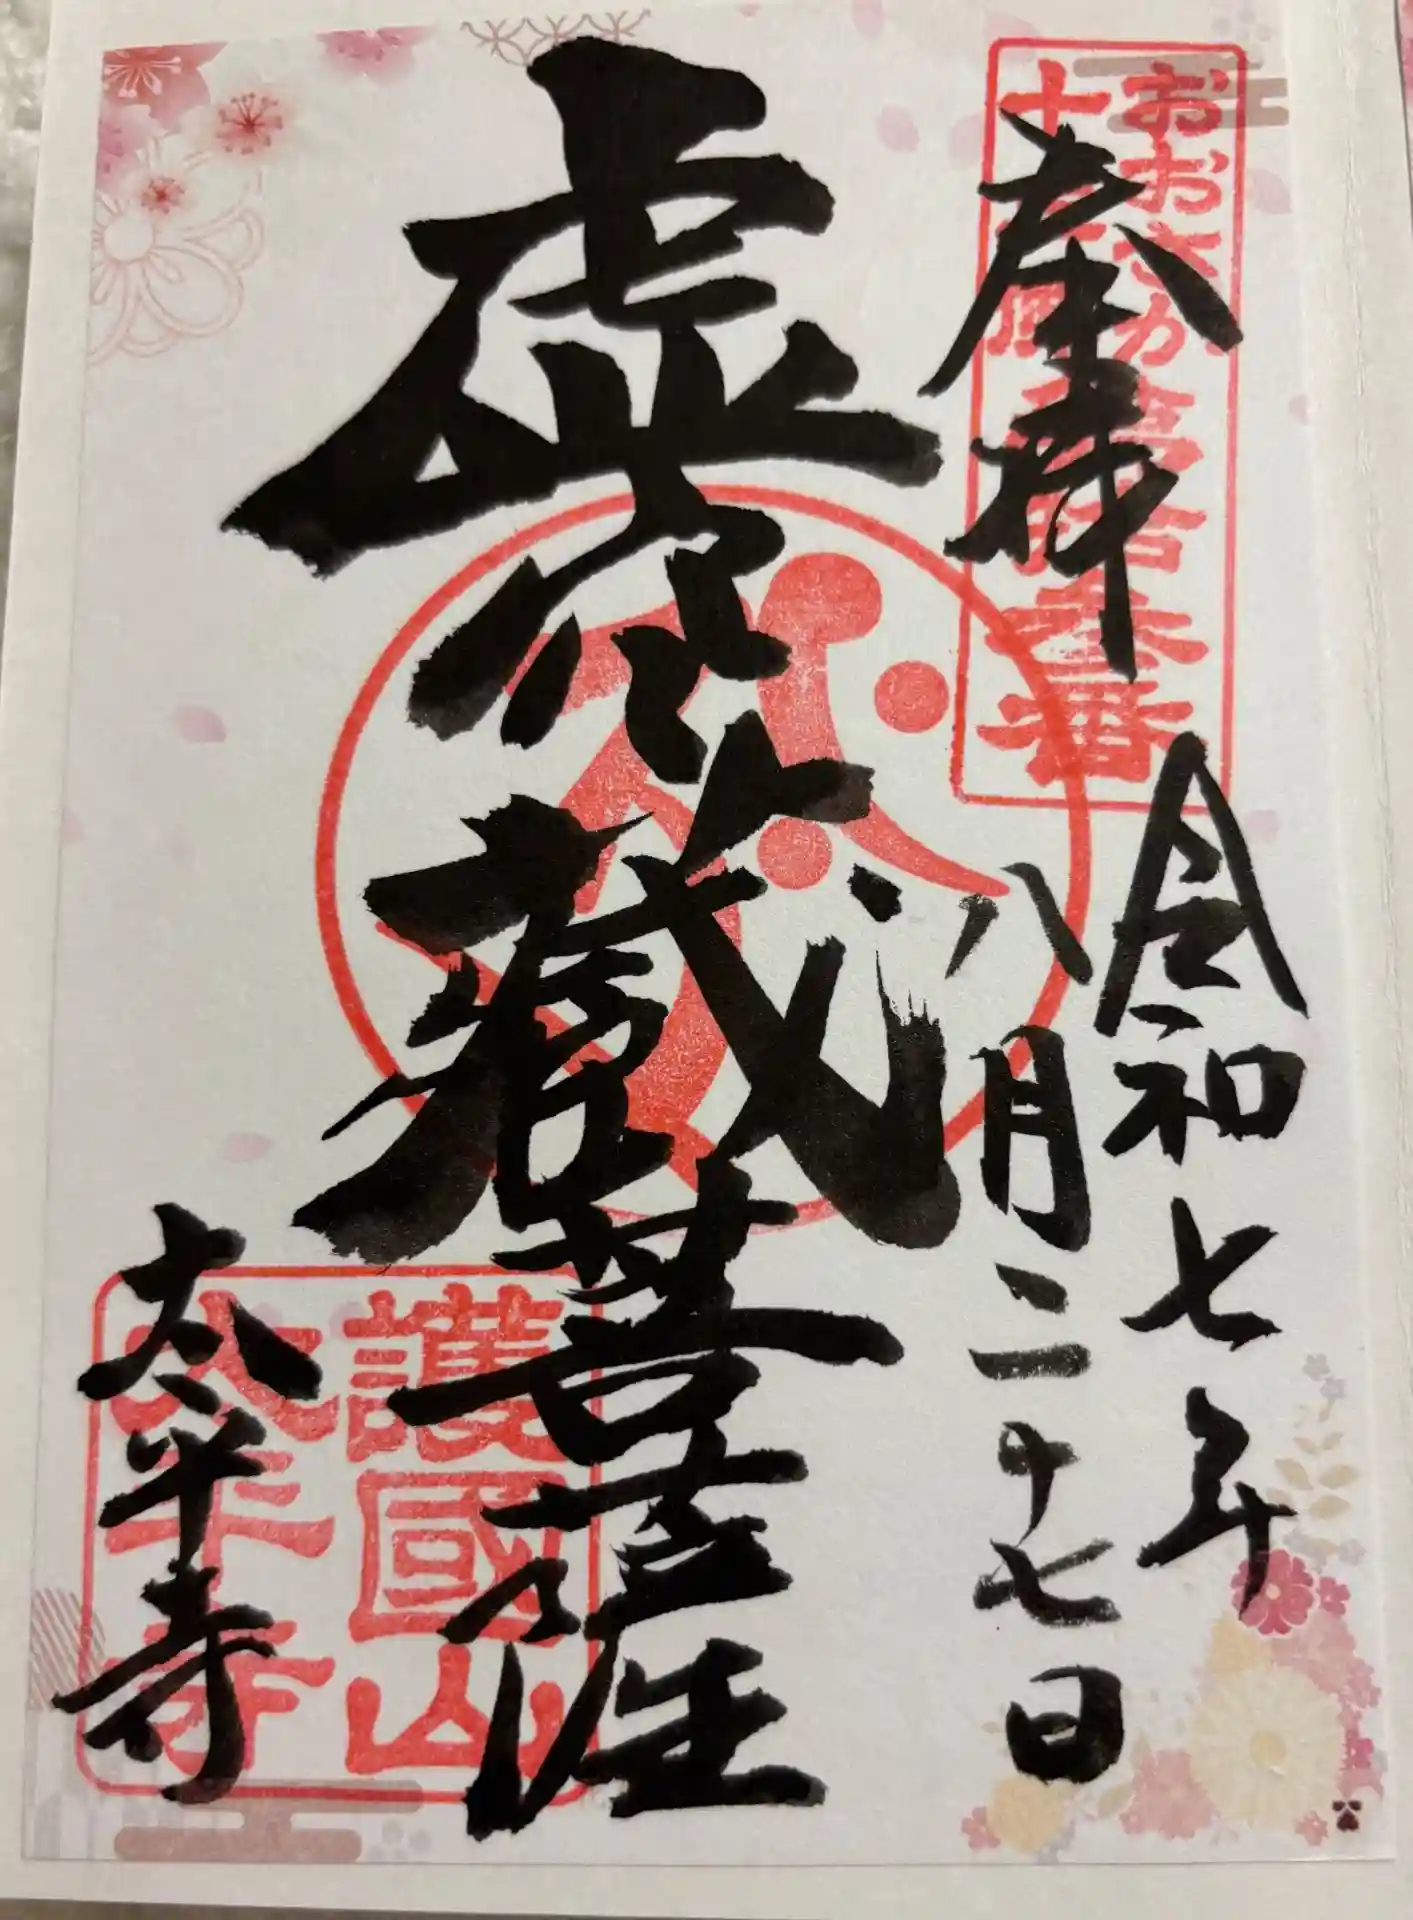 おおさか
十三佛
奉拝
令和七年
八月二十七日
虚空蔵菩薩
護國山
太平寺
太平寺